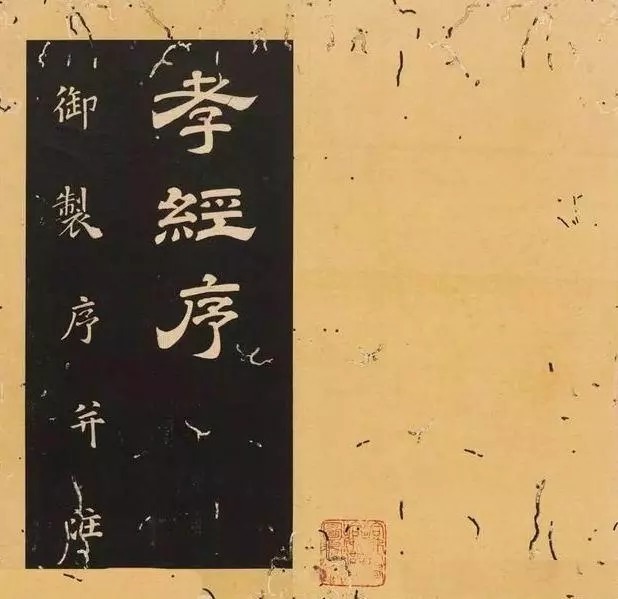 孝經序
御製序并注